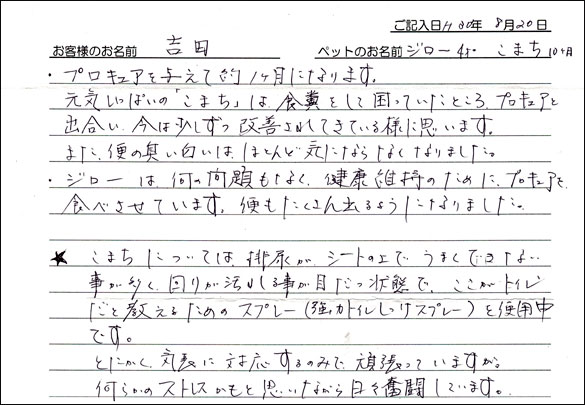 ご記入日 H30年 8月20日
お客様のお名前 吉田 ペットのお名前 ジロー 4才・ こまち 10ヶ月
・プロキュアを与えて約1ヶ月になります。
元気いっぱいの「こまち」は、食糞をして困っていたところ、プロキュアと
出合い、今は少しずつ改善されてきている様に思います。
また、便の臭い匂いは、ほとんど気にならなくなりました。
・ジローは、何の問題もなく、健康維持のために、プロキュアを、
食べさせています。便もたくさん出るようになりました。
★ こまちについては、排尿が、シートの上で、うまくできない
事が多く、回りが汚れる事が目だつ状態で、ここがトイレ
だと教えるためのスプレー(強力トイレしつけスプレー)を使用中
です。
とにかく、気長に対応するのみで、頑張っていますが。
何らかのストレスかもと思いながら日々奮闘しています。